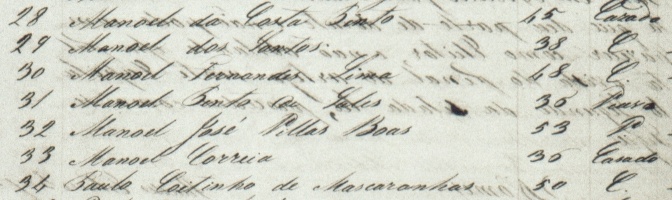 28 Manoel da Costa Pinto 45 Casado
29 Manoel dos Santos 38 C.
30 Manoel Fernandes Lima 48 C.
31 Manoel Bento de Sales 35
32 Manoel José Villas Boas 53 V.
33 Manoel Correia 35 Casado
34 Paulo Coitinho de Mascaranhas 50 C.